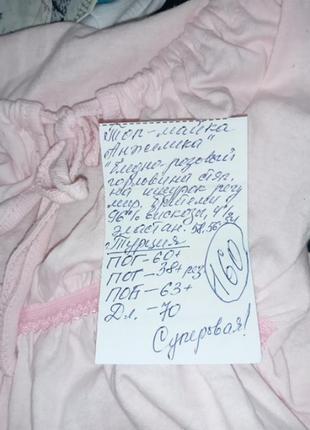 Топ-майка
Анжелика"
"Бледно-розовый
горловина сбр.
на шнурок регу
мир. Бретели у
96% вискоза, 4%
эластан. 58,56
Турция
ПОГ-60+
ПОТ-38+рез
ПОБ-63+
Дл. -70
160
Суперовая!